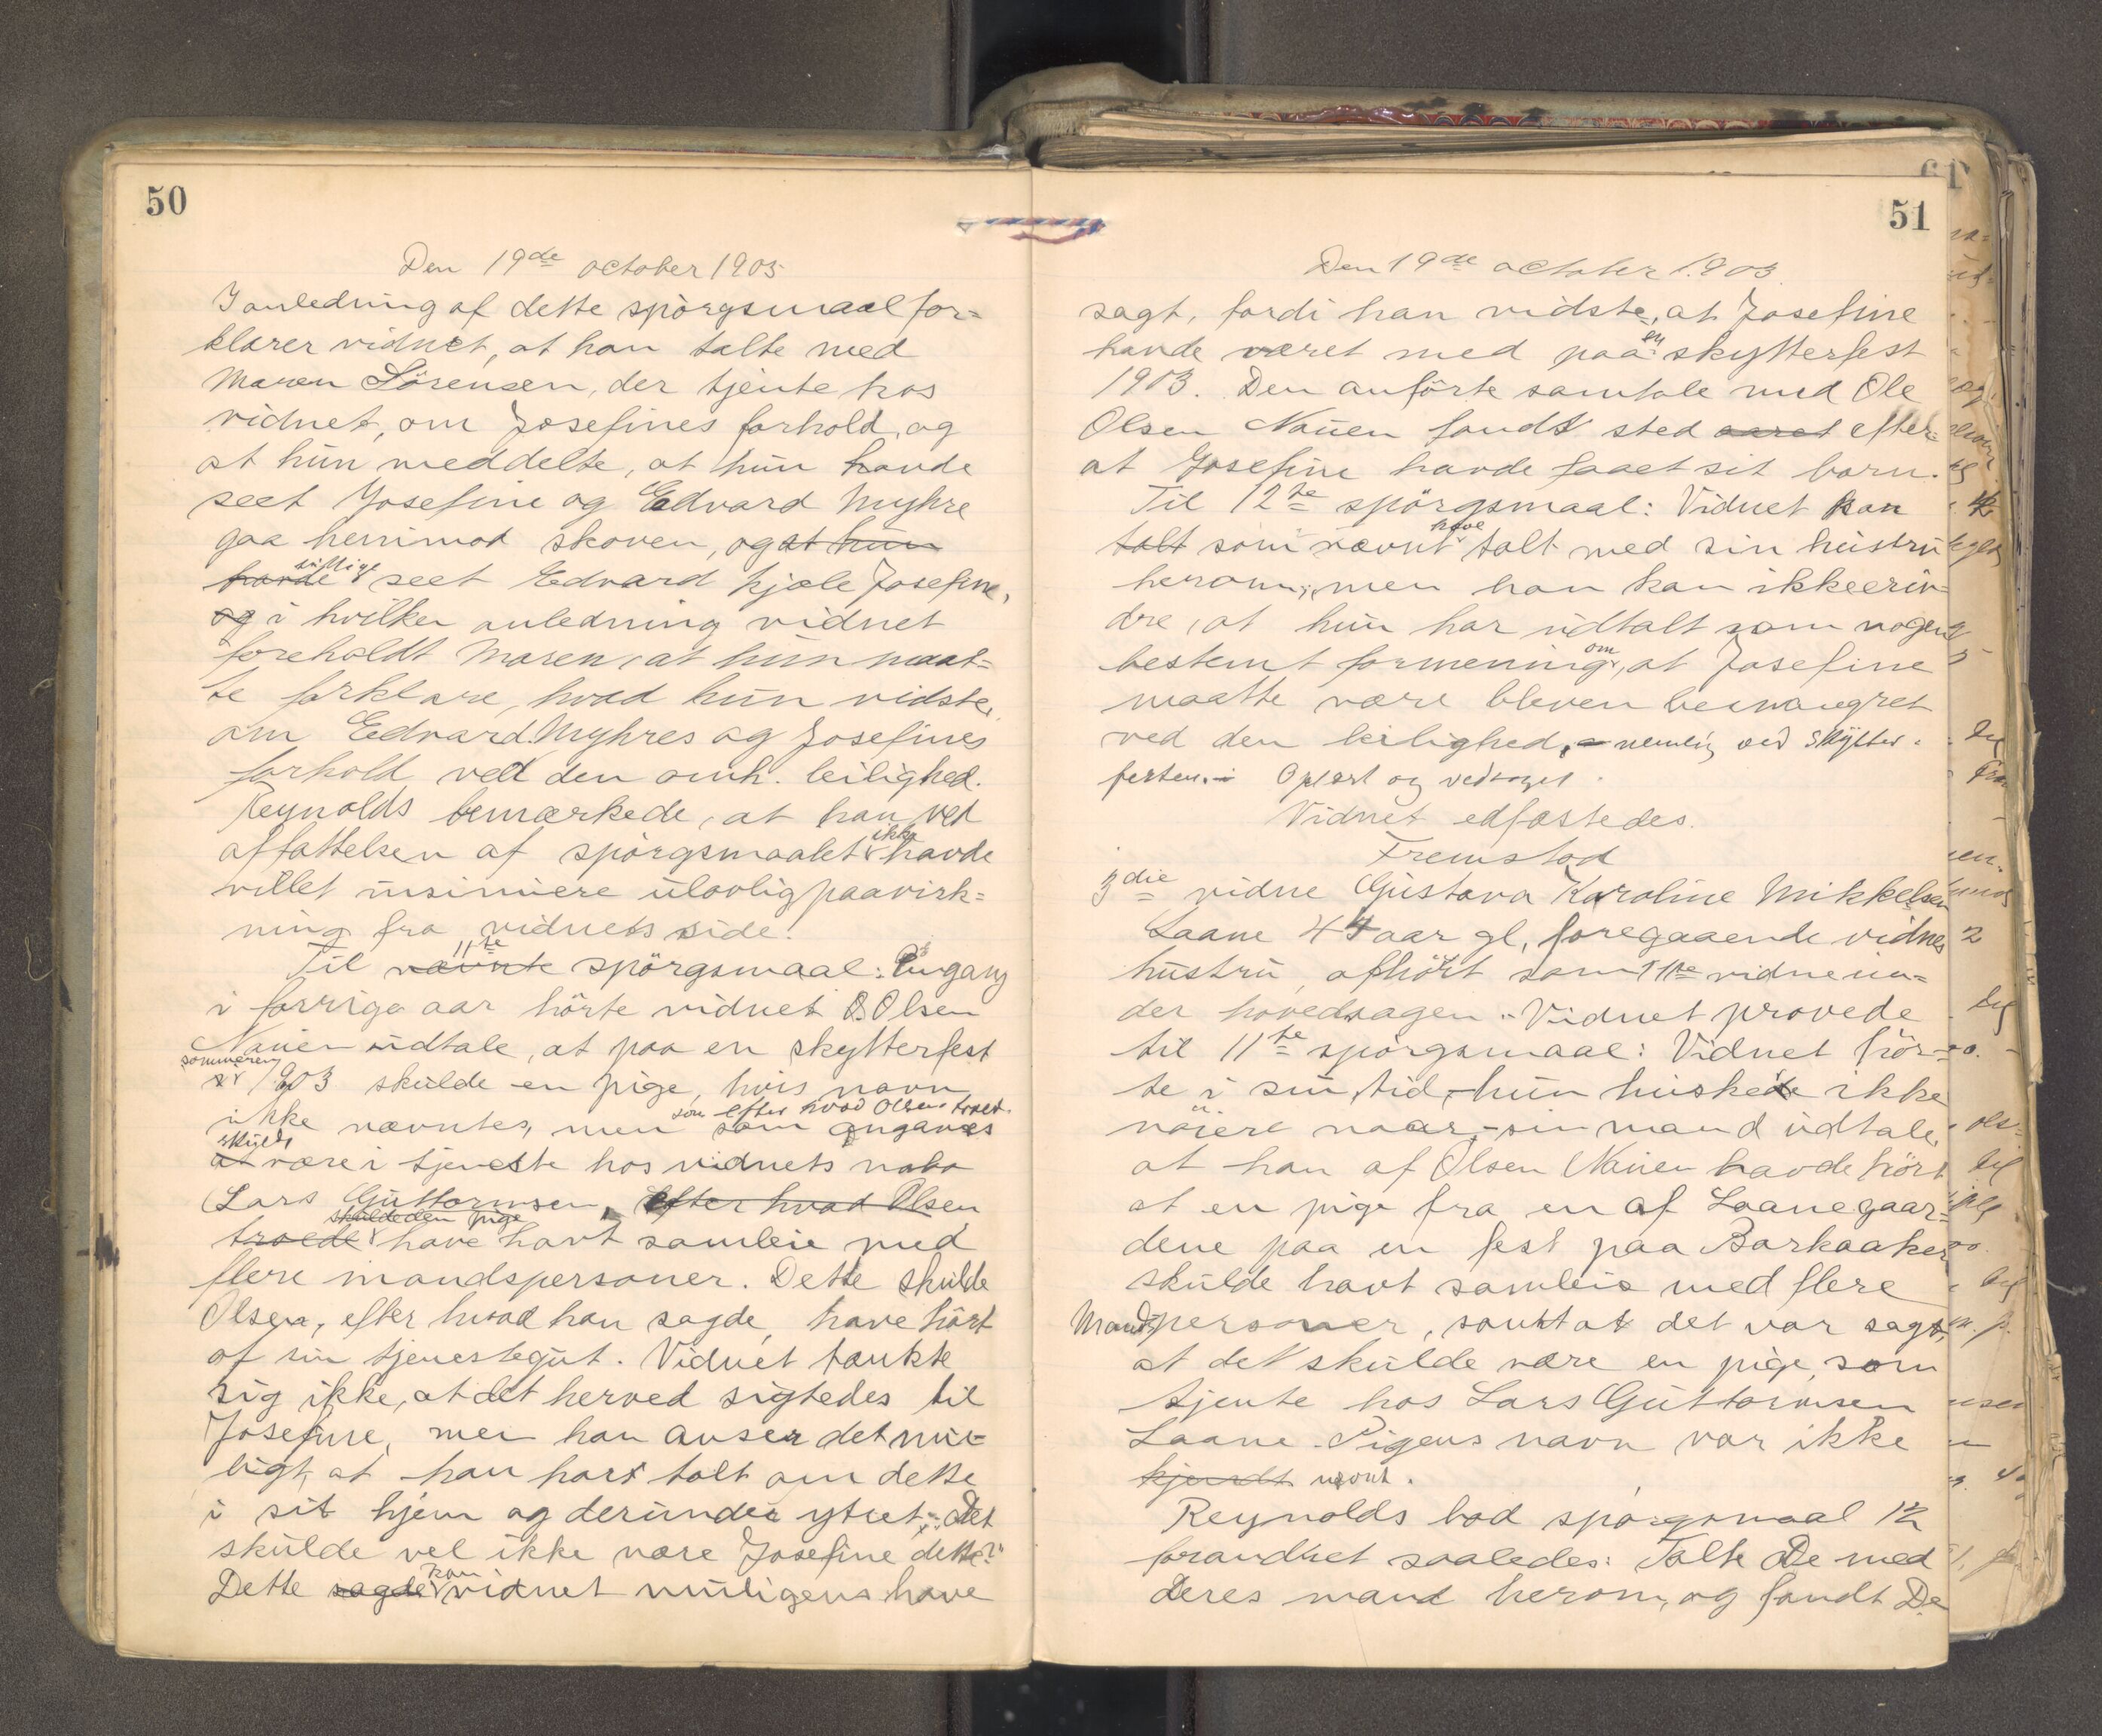 50
Den 19de october 1905
I anledning af dette spörgsmaal for=
klarer vidnet, at han talte med
Maren Sörensen, der tjente hos
vidnet, om Josefines forhold, og
at hun meddelte, at hun havde
seet Josefine og Edvard Myhre
gaa henimod skoven, og at hun
havde seet Edvard kjæle Josefine,
og i hvilken anledning vidnet
foreholdt Maren, at hun maat=
te forklare, hvad hun vidste,
om Edvard Myhres og Josefines
forhold ved den omh. leilighed.
Reynolds bemærkede, at han ved
affattelsen af spörgsmaalet ikke havde
villet insinuere ulovlig paavirk=
ning fra vidnets side.
Til nævnte 11te spörgsmaal: Engang
i forrige aar hörte vidnet O. Olsen
Nauen udtale, at paa en skytterfest
sommeren 1903 skulde en pige, hvis navn
ikke nævntes, men som efter hvad Olsen troede
som angaves
skulde
at være i tjeneste hos vidnets nabo
Lars Guttormsen, efter hvad Olsen
troede skulde den pige have havt samleie med
flere mandspersoner. Dette skulde
Olsen, efter hvad han sagde, have hört
af sin tjenestegut. Vidnet tænkte
sig ikke, at det herved sigtedes til
Josefine, men han anser det mu=
ligt, at han har talt om dette
i sit hjem og derunder ytret: "Det
skulde vel ikke være Josefine dette?"
Dette sagde kan vidnet muligens have
51
Den 19de october 1903
sagt, fordi han vidste, at Josefine
havde været med paa en skytterfest
1903. Den anförte samtale med Ole
Olsen Nauen fandt sted aaret efter=
at Josefine havde faaet sit barn.
Til 12te spörgsmaal: Vidnet kan
talt som nævnt have talt med sin hustru
herom, men han kan ikke erin=
dre, at hun har udtalt som nogen
bestemt formening om, at Josefine
maatte være bleven besvangret
ved den leilighed, nemlig ved skytter=
festen. Oplæst og vedtaget.
Vidnet edfæstedes.
Fremstod
3die vidne Gustava Karoline Mikkelsen
Laane 44 aar gl, foregaaende vidnes
hustru, afhört som 11te vidne un=
der hovedsagen. Vidnet provede
til 11te spörgsmaal: Vidnet hör=
te i sin tid, hun huskede ikke
nöiere naar, sin mand udtale,
at han af Olsen Nauen havde hört
at en pige fra en af Laanegaar=
dene paa en fest paa Barkaaker
skulde havt samleie med flere
Mandspersoner, samt at det var sagt,
at det skulde være en pige, som
tjente hos Lars Guttormsen
Laane. Pigens navn var ikke
kjendt nævnt.
Reynolds bad spörgsmaal 12
forandret saaledes: Talte De med
Deres mand herom, og fandt De